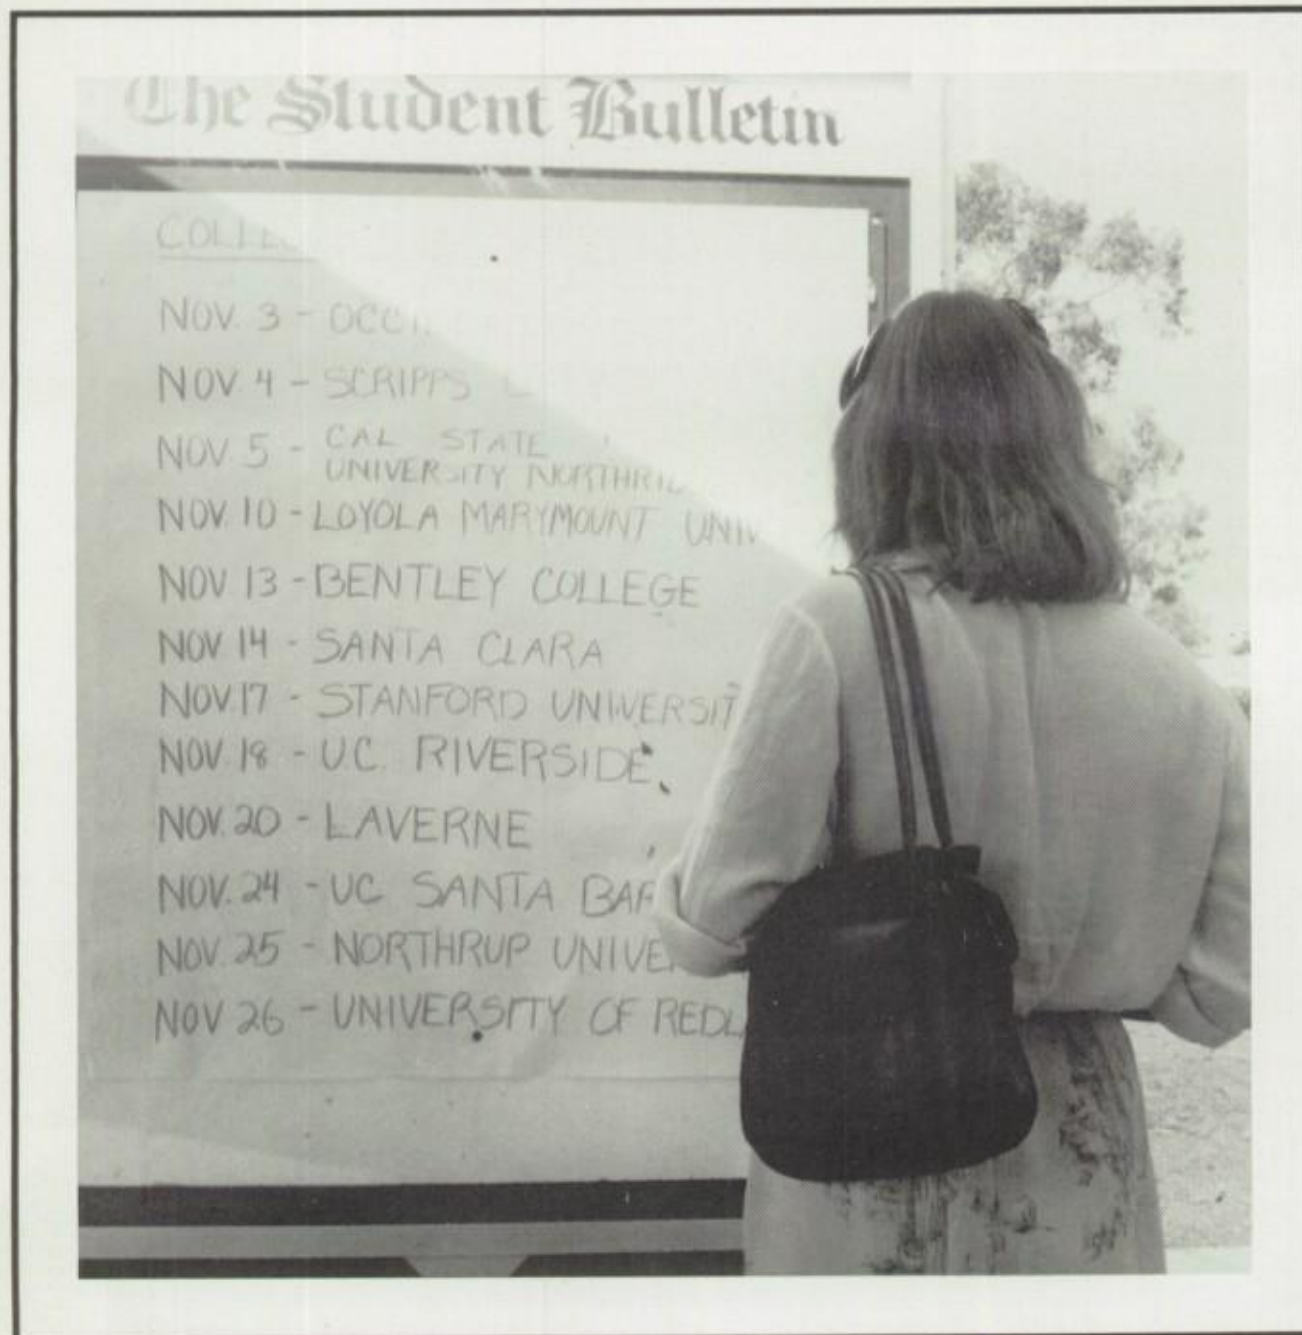 The Student Bulletin
NOV. 3 -
NOV. 4 - SCRIPPS
NOV. 5 - CAL STATE
UNIVERSITY
NOV. 10 - LOYOLA MARYMOUNT
NOV 13 - BENTLEY COLLEGE
NOV 14 - SANTA CLARA
NOV.17 - STANFORD
NOV. 18 - UC. RIVERSIDE
NOV. 20 - LAVERNE
NOV. 24 - UC SANTA
NOV. 25 - NORTHRUP
NOV 26 - UNIVERSITY OF